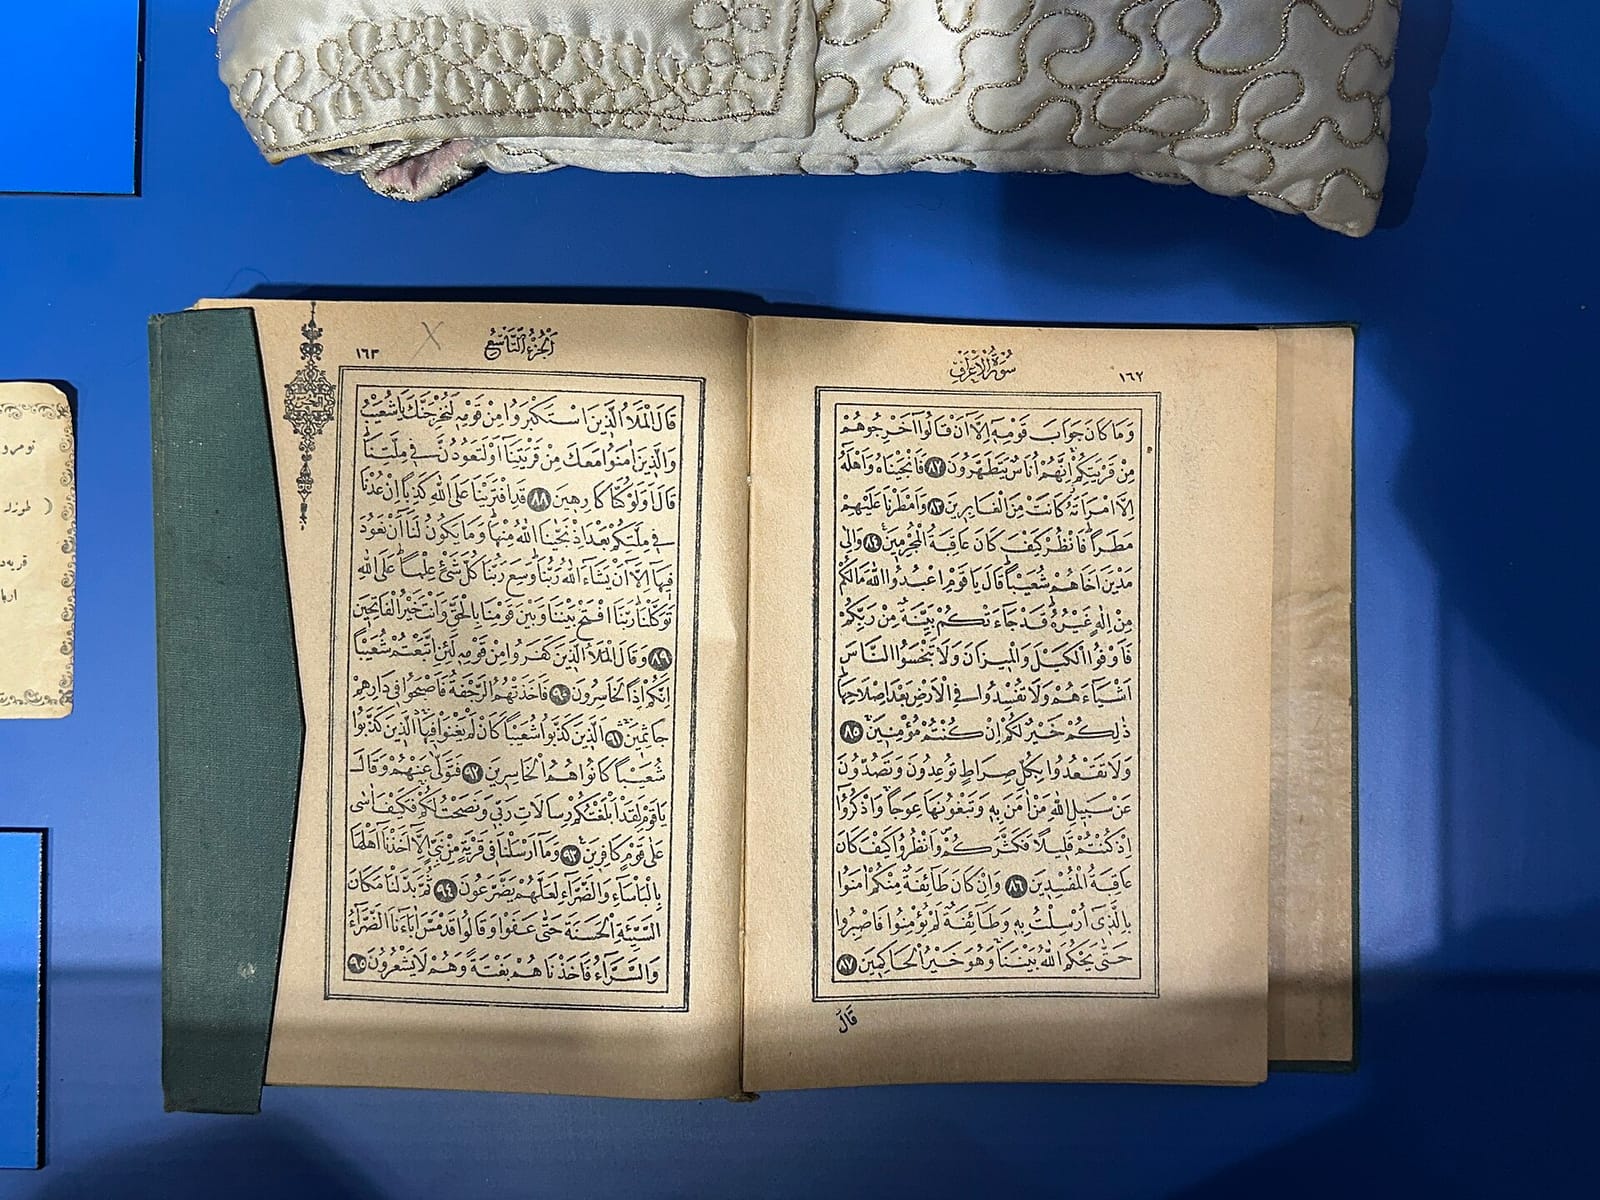 سُورَةُ الْاَعْرَافِ
١٦٢
وَمَا كَانَ جَوَابَ قَوْمِهٖٓ اِلَّٓا اَنْ قَالُٓوا اَخْرِجُوهُمْ
مِنْ قَرْيَتِكُمْۚ اِنَّهُمْ اُنَاسٌ يَتَطَهَّرُونَ ٨٢ فَاَنْجَيْنَاهُ وَاَهْلَهُٓ
اِلَّا امْرَاَتَهُۘ كَانَتْ مِنَ الْغَابِرٖينَ ٨٣ وَاَمْطَرْنَا عَلَيْهِمْ
مَطَرًاۜ فَانْظُرْ كَيْفَ كَانَ عَاقِبَةُ الْمُجْرِمٖينَ۟ ٨٤ وَاِلٰى
مَدْيَنَ اَخَاهُمْ شُعَيْبًاۜ قَالَ يَا قَوْمِ اعْبُدُوا اللّٰهَ مَالَكُمْ
مِنْ اِلٰهٍ غَيْرُهُۜ قَدْ جَٓاءَتْكُمْ بَيِّنَةٌ مِنْ رَبِّكُمْ
فَاَوْفُوا الْكَيْلَ وَالْمٖيزَانَ وَلَا تَبْخَسُوا النَّاسَ
اَشْيَٓاءَهُمْ وَلَا تُفْسِدُوا فِي الْاَرْضِ بَعْدَ اِصْلَاحِهَاۜ
ذٰلِكُمْ خَيْرٌ لَكُمْ اِنْ كُنْتُمْ مُؤْمِنٖينَۚ ٨٥
وَلَا تَقْعُدُوا بِكُلِّ صِرَاطٍ تُوعِدُونَ وَتَصُدُّونَ
عَنْ سَبٖيلِ اللّٰهِ مَنْ اٰمَنَ بِهٖ وَتَبْغُونَهَا عِوَجًاۚ وَاذْكُرُٓوا
اِذْ كُنْتُمْ قَلٖيلًا فَكَثَّرَكُمْۖ وَانْظُرُوا كَيْفَ كَانَ
عَاقِبَةُ الْمُفْسِدٖينَ ٨٦ وَاِنْ كَانَ طَٓائِفَةٌ مِنْكُمْ اٰمَنُوا
بِالَّذٖٓي اُرْسِلْتُ بِهٖ وَطَٓائِفَةٌ لَمْ يُؤْمِنُوا فَاصْبِرُوا
حَتّٰى يَحْكُمَ اللّٰهُ بَيْنَنَاۚ وَهُوَ خَيْرُ الْحَاكِمٖينَ ٨٧
قَالَ
اَلْجُزْءُ التَّاسِعُ
١٦٣
قَالَ الْمَلَاُ الَّذٖينَ اسْتَكْبَرُوا مِنْ قَوْمِهٖ لَنُخْرِجَنَّكَ يَا شُعَيْبُ
وَالَّذٖينَ اٰمَنُوا مَعَكَ مِنْ قَرْيَتِنَٓا اَوْ لَتَعُودُنَّ فٖي مِلَّتِنَاۜ
قَالَ اَوَلَوْ كُنَّا كَارِهٖينَ ٨٨ قَدِ افْتَرَيْنَا عَلَى اللّٰهِ كَذِبًا اِنْ عُدْنَا
فٖي مِلَّتِكُمْ بَعْدَ اِذْ نَجّٰينَا اللّٰهُ مِنْهَاۜ وَمَا يَكُونُ لَنَٓا اَنْ نَعُودَ
فٖيهَٓا اِلَّٓا اَنْ يَشَٓاءَ اللّٰهُ رَبُّنَاۜ وَسِعَ رَبُّنَا كُلَّ شَيْءٍ عِلْمًاۜ عَلَى اللّٰهِ
تَوَكَّلْنَاۜ رَبَّنَا افْتَحْ بَيْنَنَا وَبَيْنَ قَوْمِنَا بِالْحَقِّ وَاَنْتَ خَيْرُ الْفَاتِحٖينَ
٨٩ وَقَالَ الْمَلَاُ الَّذٖينَ كَفَرُوا مِنْ قَوْمِهٖ لَئِنِ اتَّبَعْتُمْ شُعَيْبًا
اِنَّكُمْ اِذًا لَخَاسِرُونَ ٩٠ فَاَخَذَتْهُمُ الرَّجْفَةُ فَاَصْبَحُوا فٖي دَارِهِمْ
جَاثِمٖينَۚ ٩١ اَلَّذٖينَ كَذَّبُوا شُعَيْبًا كَاَنْ لَمْ يَغْنَوْا فٖيهَاۚ اَلَّذٖينَ كَذَّبُوا
شُعَيْبًا كَانُوا هُمُ الْخَاسِرٖينَ ٩٢ فَتَوَلّٰى عَنْهُمْ وَقَالَ
يَا قَوْمِ لَقَدْ اَبْلَغْتُكُمْ رِسَالَاتِ رَبّٖي وَنَصَحْتُ لَكُمْۚ فَكَيْفَ اٰسٰى
عَلٰى قَوْمٍ كَافِرٖينَ۟ ٩٣ وَمَٓا اَرْسَلْنَا فٖي قَرْيَةٍ مِنْ نَبِيٍّ اِلَّٓا اَخَذْنَٓا اَهْلَهَا
بِالْبَاْسَٓاءِ وَالضَّرَّٓاءِ لَعَلَّهُمْ يَضَّرَّعُونَ ٩٤ ثُمَّ بَدَّلْنَا مَكَانَ
السَّيِّئَةِ الْحَسَنَةَ حَتّٰى عَفَوْا وَقَالُوا قَدْ مَسَّ اٰبَٓاءَنَا الضَّرَّٓاءُ
وَالسَّرَّٓاءُ فَاَخَذْنَاهُمْ بَغْتَةً وَهُمْ لَا يَشْعُرُونَ ٩٥
نومرو